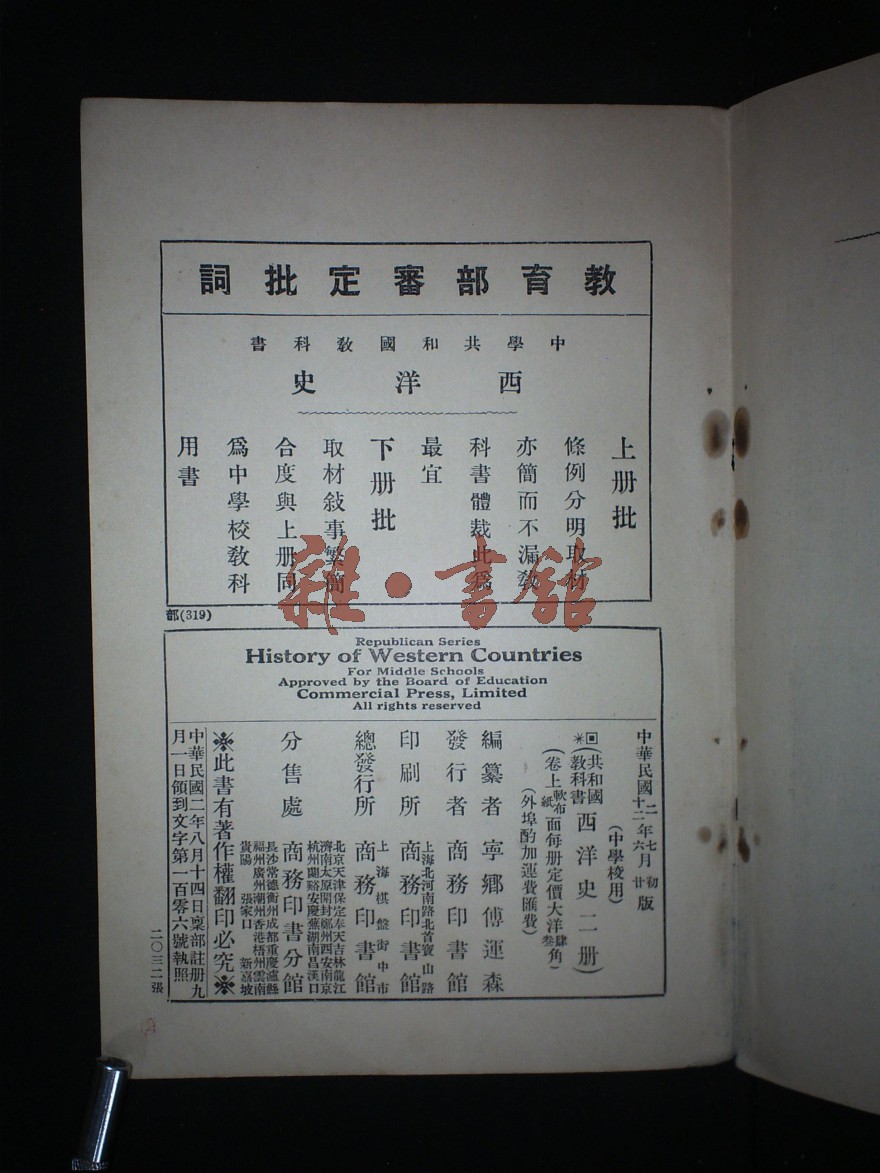 教育部審定批詞
中學共和國教科書
西洋史
上册批
條例分明取材
亦簡而不漏教
科書體裁此爲
最宜
下册批
取材敍事繁簡
合度與上册同
爲中學校教科
用書
部(319)
雜·書館
Republican Series
History of Western Countries
For Middle Schools
Approved by the Board of Education
Commercial Press, Limited
All rights reserved
中華民國二年七月初版
十二年六月廿版
(中學校用)
共和國教科書西洋史二册
(卷上軟布紙面每册定價大洋肆叁角)
(外埠酌加運費匯費)
編纂者 寧鄉傅運森
發行者 商務印書館
上海北河南路北首寶山路
印刷所 商務印書館
上海棋盤街中市
總發行所 商務印書館
分售處 商務印書分館
北京天津保定奉天吉林龍江
濟南太原開封鄭州西安南京
杭州蘭谿安慶蕪湖南昌漢口
長沙常德衡州成都重慶瀘縣
福州廣州潮州香港梧州雲南
貴陽 張家口 新嘉坡
※此書有著作權翻印必究※
中華民國二年八月十四日稟部註册九
月一日領到文字第一百零六號執照
二〇三二張